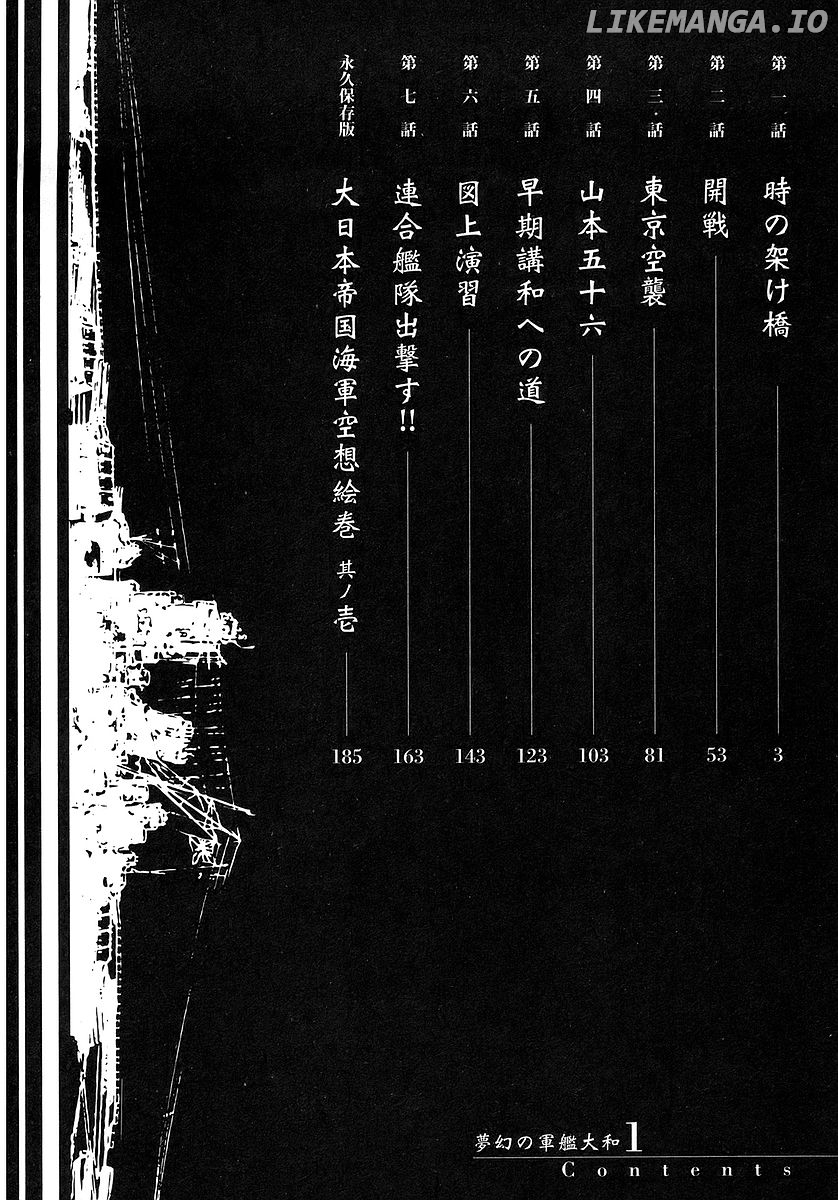 LIKEMANGA.IO
第一話 時の架け橋 3
第二話 開戦 53
第三話 東京空襲 81
第四話 山本五十六 103
第五話 早期講和への道 123
第六話 図上演習 143
第七話 連合艦隊出撃す!! 163
永久保存版 大日本帝国海軍空想絵巻 其ノ壱 185
夢幻の軍艦大和 1
Contents